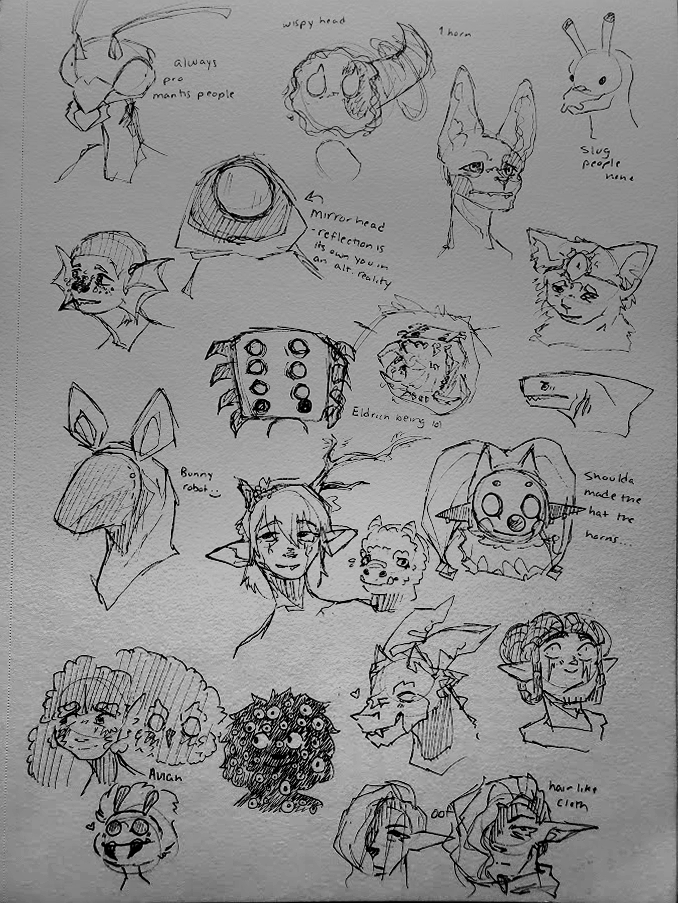 wispy head
1 horn
always
pro
mantis people
Slug
people
here
mirror head
-reflection is
its own you in
an alt. reality
Eldrich being lol
Bunny
robot
Shoulda
made the
hat the
horns...
Avian
oof
hair like
cloth